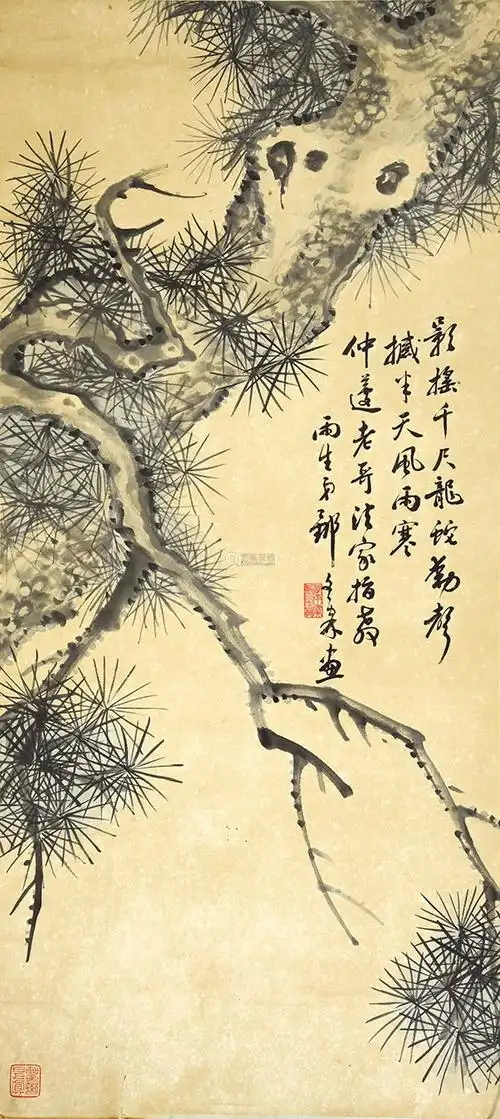 影搖千尺龍蛇動聲
撼半天風雨寒
仲老哥法家指教
雨生弟画